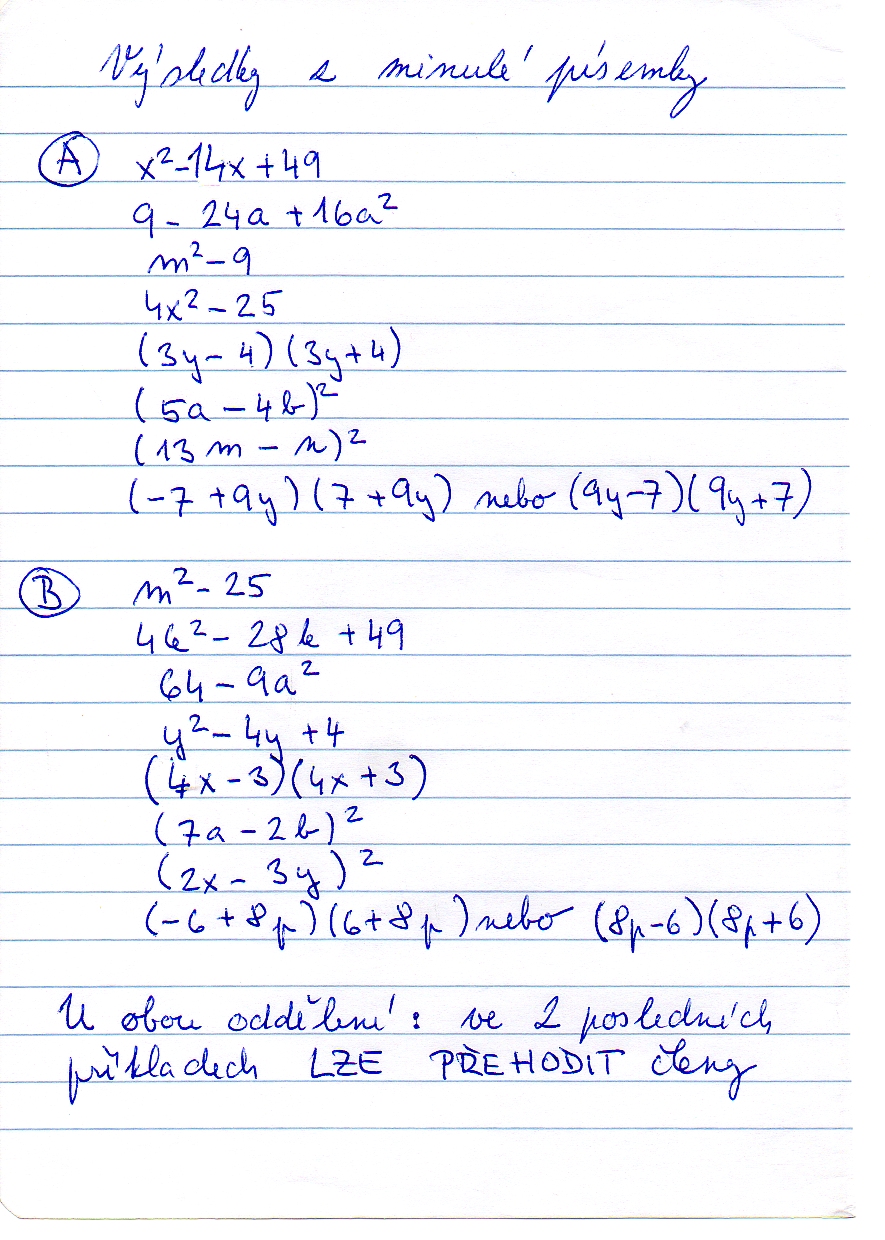 Výsledky z minulé písemky
A x²-14x+49
9 - 24a + 16a²
m² - 9
4x² - 25
(3y - 4)(3y + 4)
(5a - 4b)²
(13m - n)²
(-7 + 9y)(7 + 9y) nebo (9y-7)(9y+7)
B m² - 25
4k² - 28k + 49
64 - 9a²
y² - 4y + 4
(4x - 3)(4x + 3)
(7a - 2b)²
(2x - 3y)²
(-6 + 8p)(6 + 8p) nebo (8p-6)(8p+6)
U obou oddělení: ve 2 posledních
příkladech LZE PŘEHODIT členy